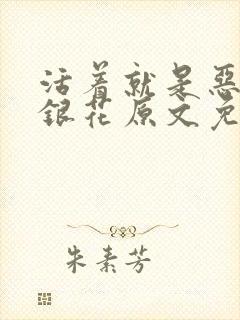 活着就是恶
銀花原文免
朱素芳